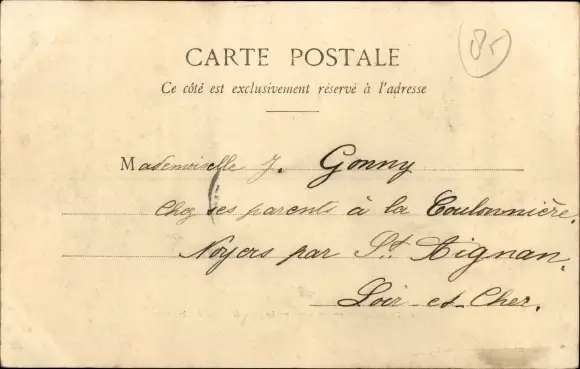 85
CARTE POSTALE
Ce côté est exclusivement réservé à l'adresse
Mademoiselle J. Gonny
Chez ses parents à la Coulonnière,
Noyers par St. Aignan,
Loir-et-Cher.